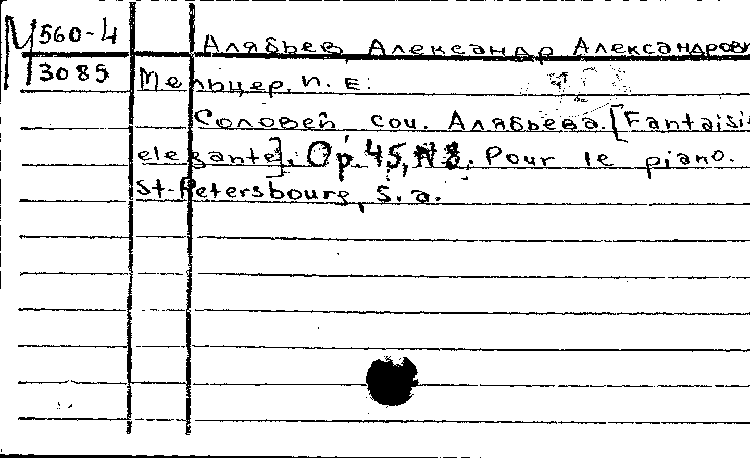 М 560-4
3085
Алябьев, Александр Александрови
Мельцер, П. Е.
Соловей соч. Алябьева. [Fantaisi
elegante]. Op. 45, №3. Pour le piano.
St-Petersbourg, S. a.